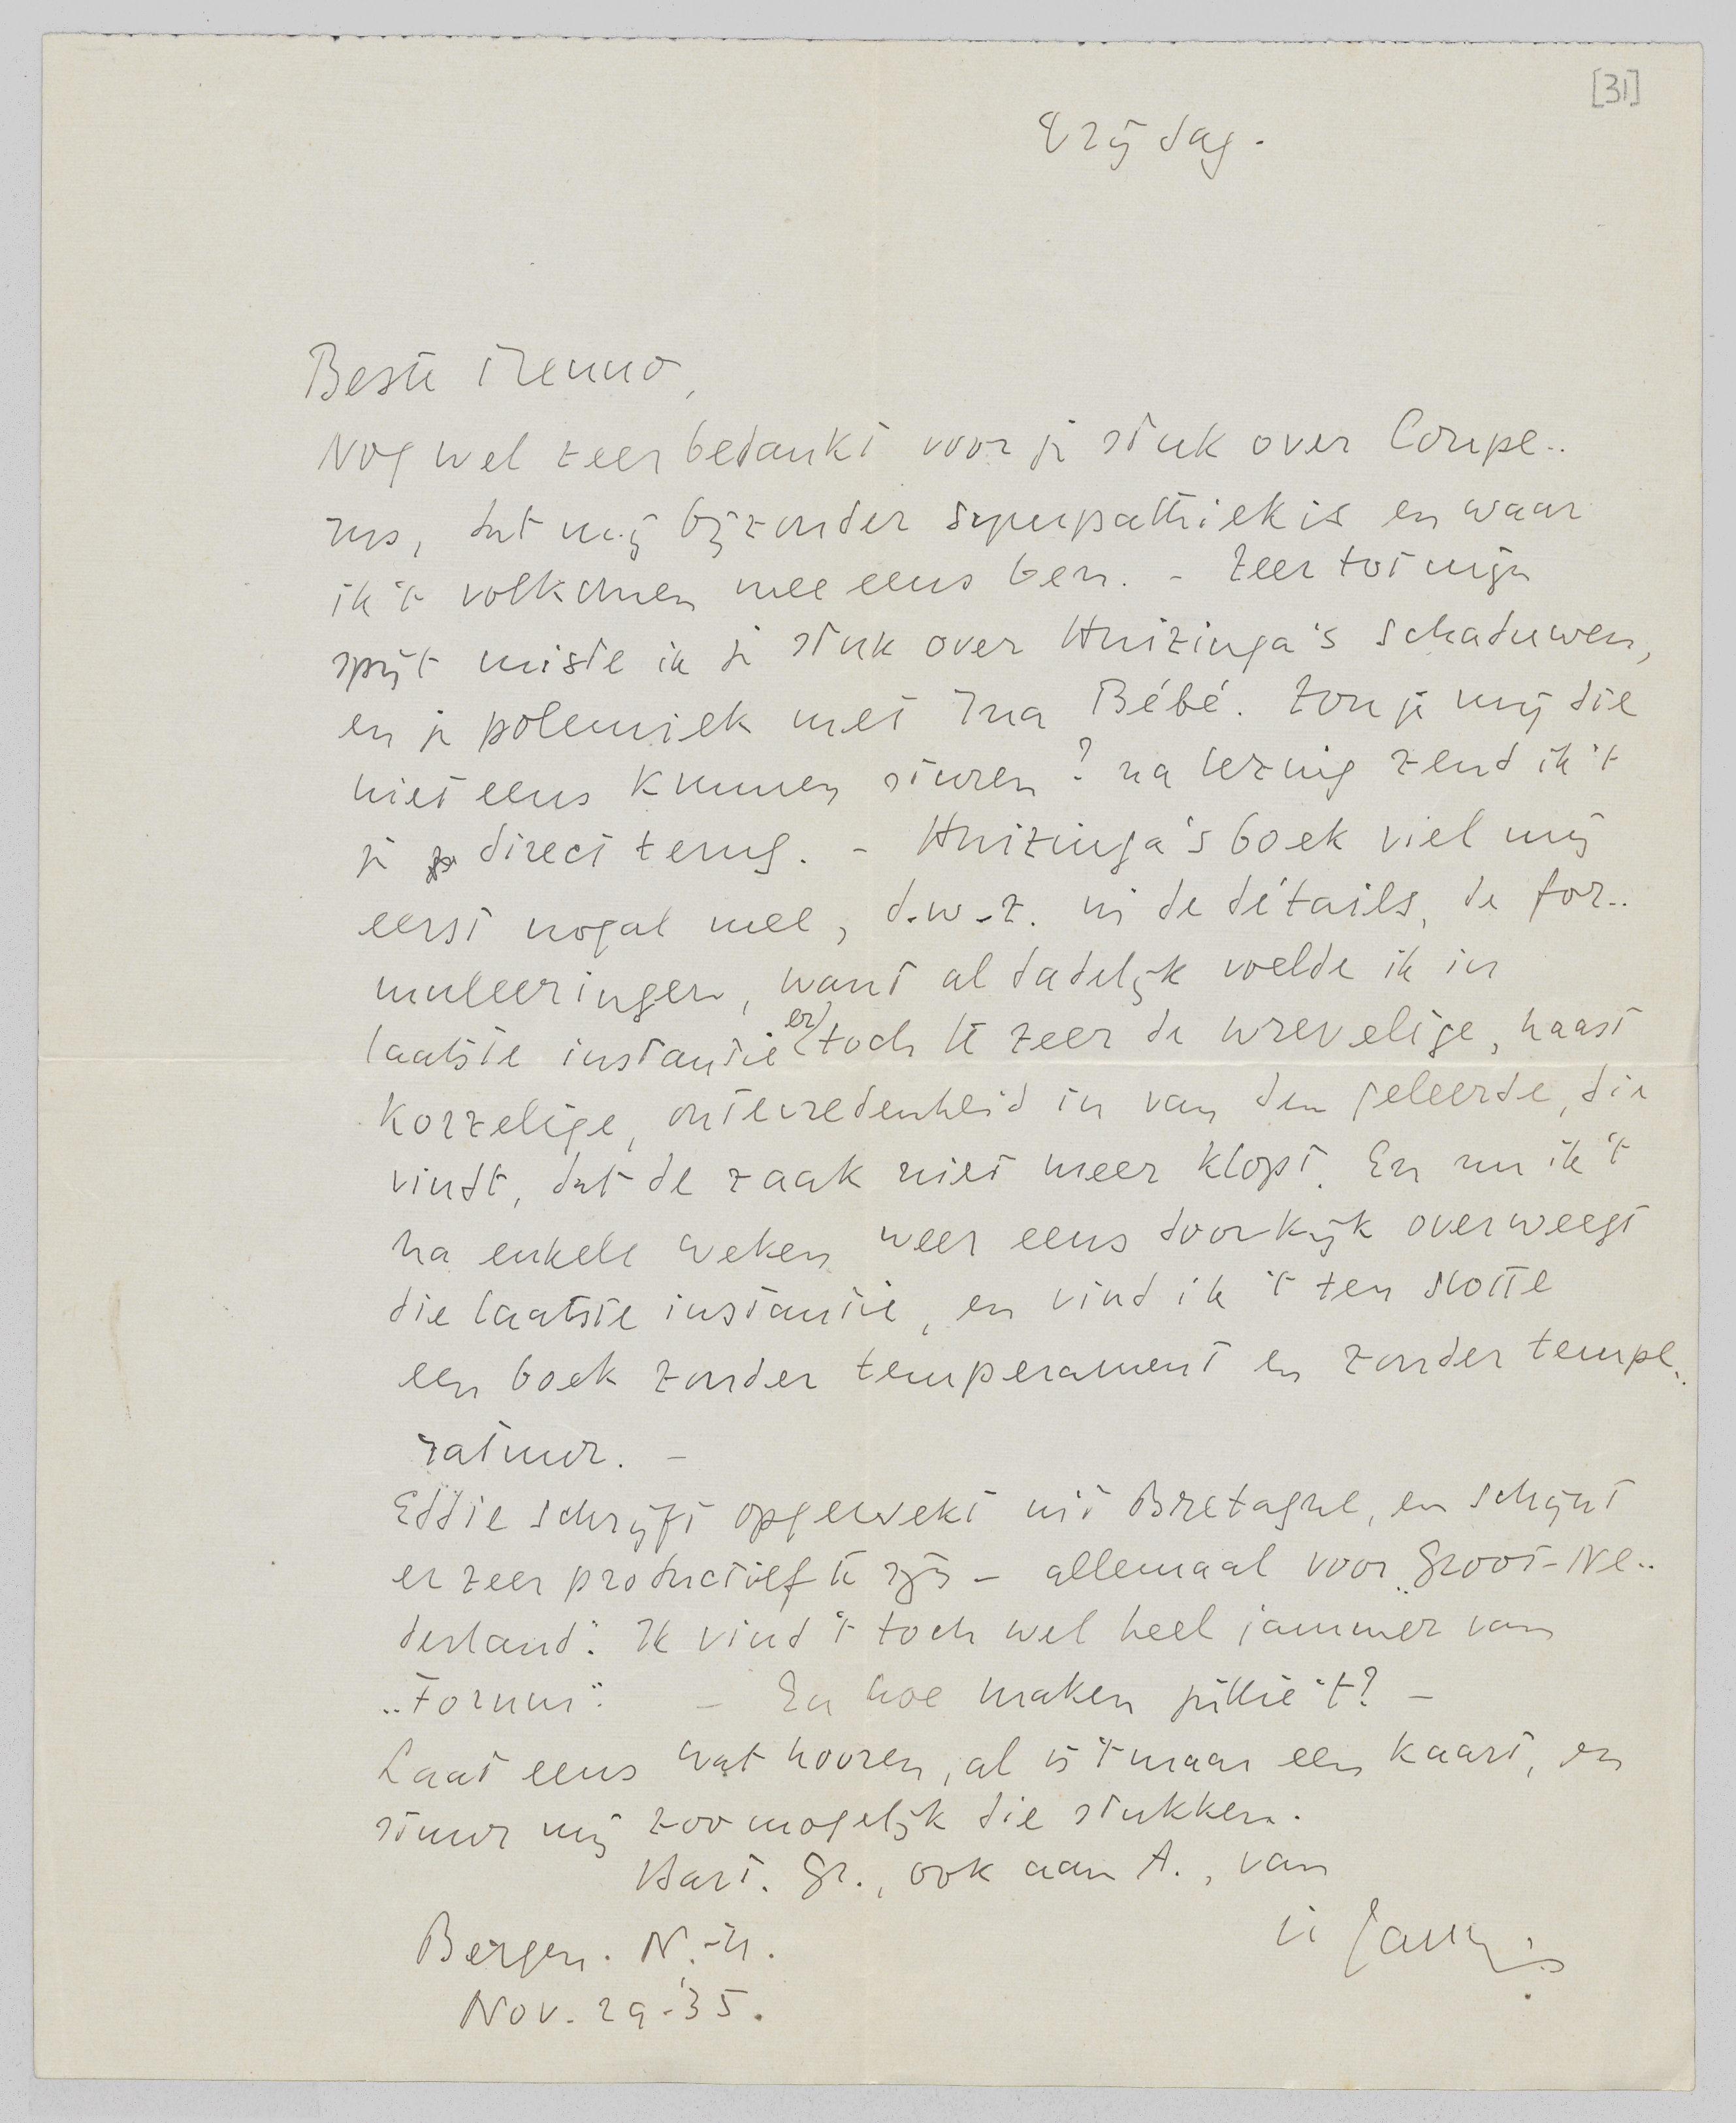 [31]
Vrijdag.
Beste Menno,
Nog wel zeer bedankt voor je stuk over Coupe..
rus, dat mij bijzonder sympathiek is en waar
ik 't volkomen mee eens ben. - Zeer tot mijn
spijt miste ik je stuk over Huizinga's schaduwen,
en je polemiek met Ina Bébé. Zou je mij die
niet eens kunnen sturen? na lezing zend ik 't
je direct terug. - Huizinga's boek viel mij
eerst nogal mee, d.w.z. in de détails, de for..
muleeringen, want al dadelijk voelde ik in
laatste instantie er toch te zeer de wrevelige, haast
korzelige, ontevredenheid in van den geleerde, die
vindt, dat de zaak niet meer klopt. En nu ik 't
na enkele weken weer eens doorkijk overweegt
die laatste instantie, en vind ik 't ten slotte
een boek zonder temperament en zonder tempe..
ratuur. -
Eddie schrijft opgewekt uit Bretagne, en schijnt
er zeer productief te zijn - allemaal voor „Groot-Ne..
derland". Ik vind 't toch wel heel jammer van
„Forum". - En hoe maken jullie 't? -
Laat eens wat hooren, al is 't maar een kaart, en
stuur mij zoo mogelijk die stukken.
Hart. Gr., ook aan A., van
je
Bergen. N.-H.
Nov. 29-'35.